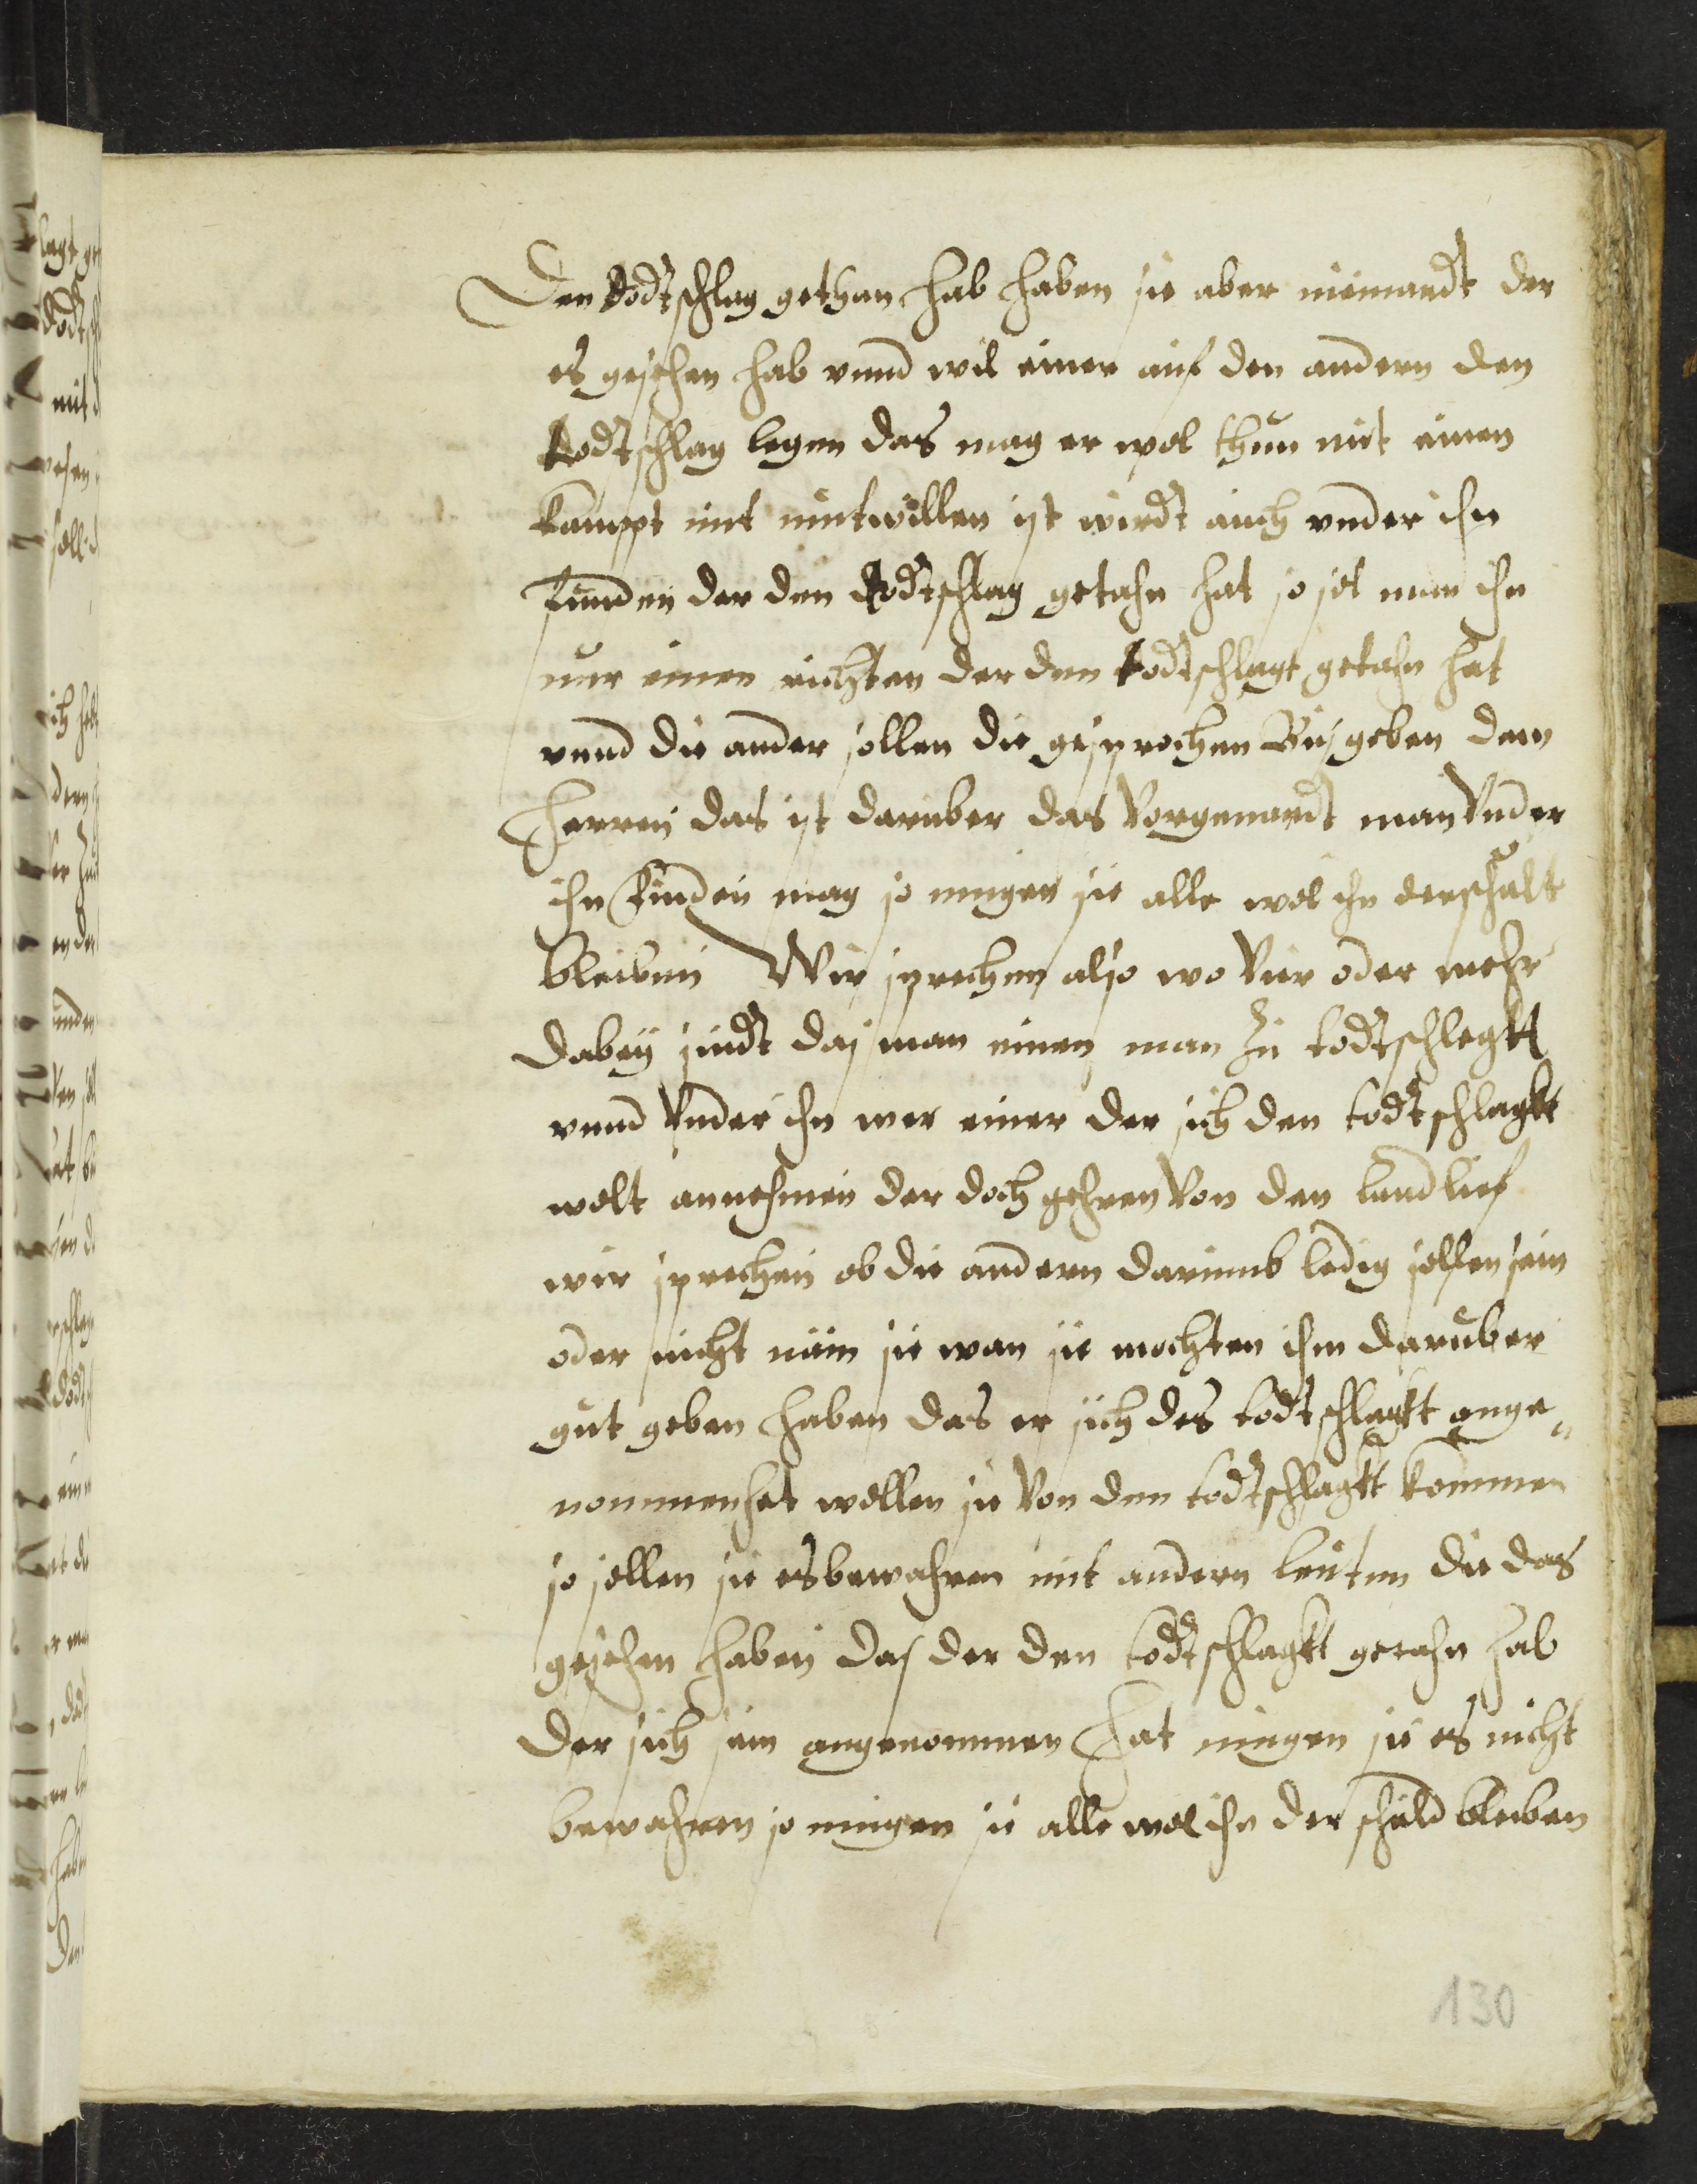 Den todtschlag gethan hab haben sie aber niemandt der
es gesehen hab vnnd wil einer auf den andern den
todtschlag legen das mag er wol thun mit einen
kampt mit mutwillen ist wirdt auch vnder ihn
funden der den todtschlag getahn hat so sol man ihn
nur einen richten der den todtschlagt getahn hat
vnnd die ander sollen die gesprochen Bus geben dem
Herren das ist daruber das vorgenandt man vnder
ihn finden mag so mugen sie alle wol ihn der schult
bleiben Wir sprechen also wo vier oder mehr
dabey sindt das man einen man zu todtschlegtt
vnnd vnder ihn wer einer der sich den todtschlagkt
wolt annehmen der doch gehren von den land lief
wir sprechen ob die andern darumb ledig sollen sein
oder nicht nain sie wan sie mochten ihm daruber
gut geben haben das er sich des todtschlagkt ange„
nommen hat wollen sie von den todtschlagkt kommen
so sollen sie es bewahren mit andern leuten die das
gesehen haben das der den todtschlagkt getahn hab
der sich sein angenommen hat mugen sie es nicht
bewahren so mugen sie alle wol ihn der schuld bleiben
130